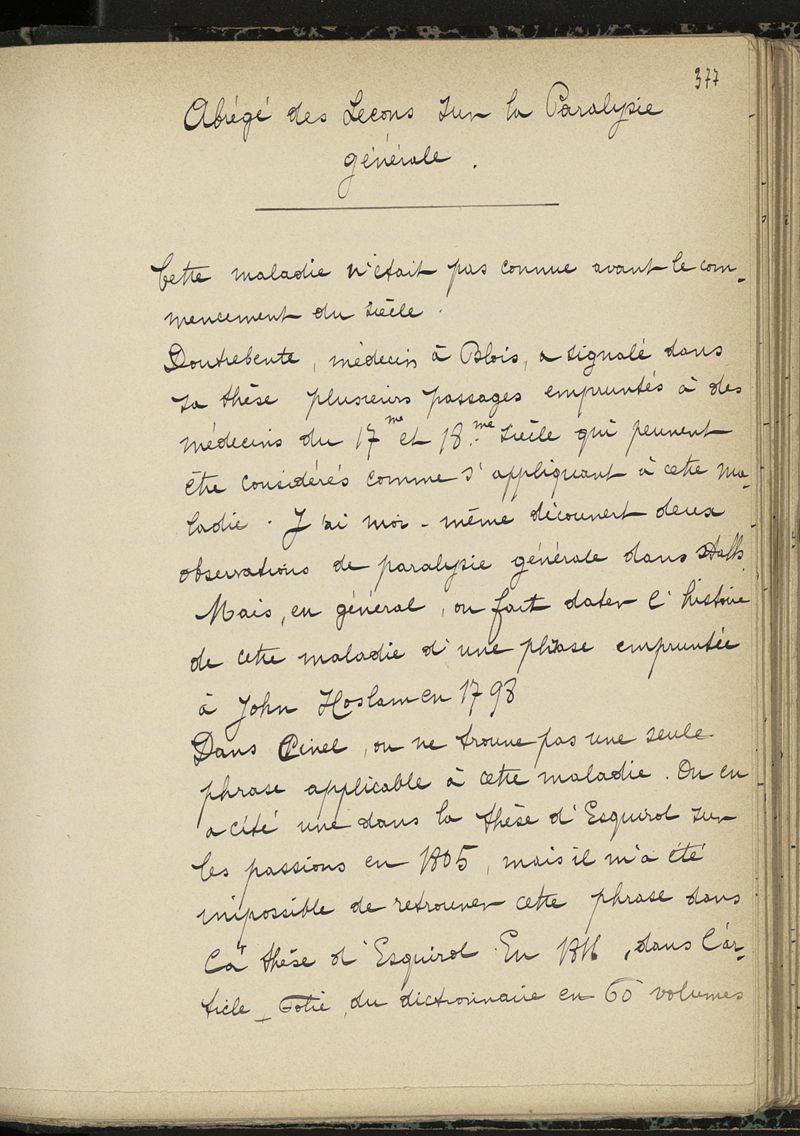 377
Abrégé des Leçons sur la Paralysie
générale.
Cette maladie n'était pas connue avant le com-
mencement du siècle.
Doutrebente, médecin à Blois, a signalé dans
sa thèse plusieurs passages empruntés à des
médecins du 17me et 18me siècle qui peuvent
être considérés comme s'appliquant à cette ma-
ladie. J'ai moi-même découvert deux
observations de paralysie générale dans
Mais, en général, on fait dater l'histoire
de cette maladie d'une phrase empruntée
à John Haslam en 1798
Dans Pinel, on ne trouve pas une seule
phrase applicable à cette maladie. On en
a cité une dans la thèse d'Esquirol sur
les passions en 1805, mais il m'a été
impossible de retrouver cette phrase dans
la thèse d'Esquirol. En 1816, dans l'ar-
ticle Folie, du dictionnaire en 60 volumes